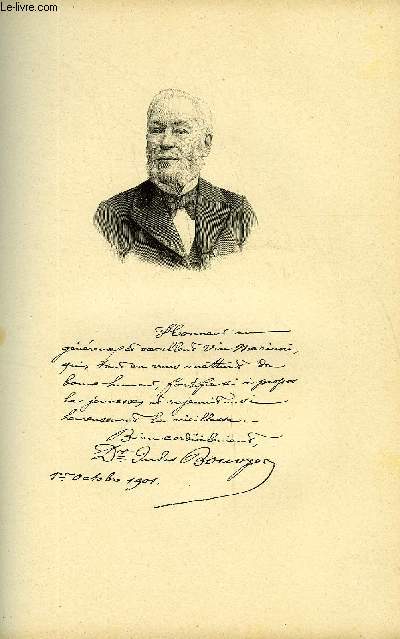 Le-livre.com
Honneur au
généreux & excellent Vin Mariani,
qui, tout en vous mettant de
bonne humeur, fortifie si à propos
la jeunesse et rajeunit si
heureusement la vieillesse. –
Bien cordialement,
Dr Jules
1er Octobre 1901.